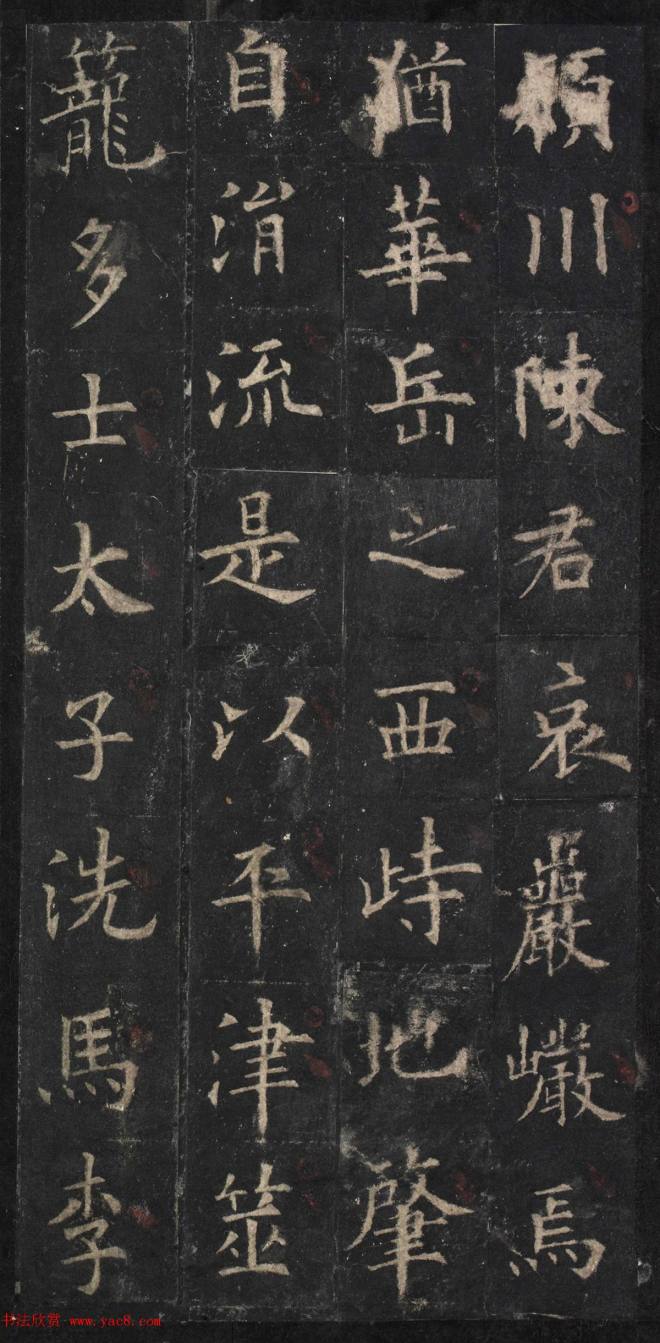 川陳君哀巖巗焉
猶華岳之西峙地肇
自涓流是以平津筮
籠多士太子洗馬李
书法欣赏 www.yac8.com